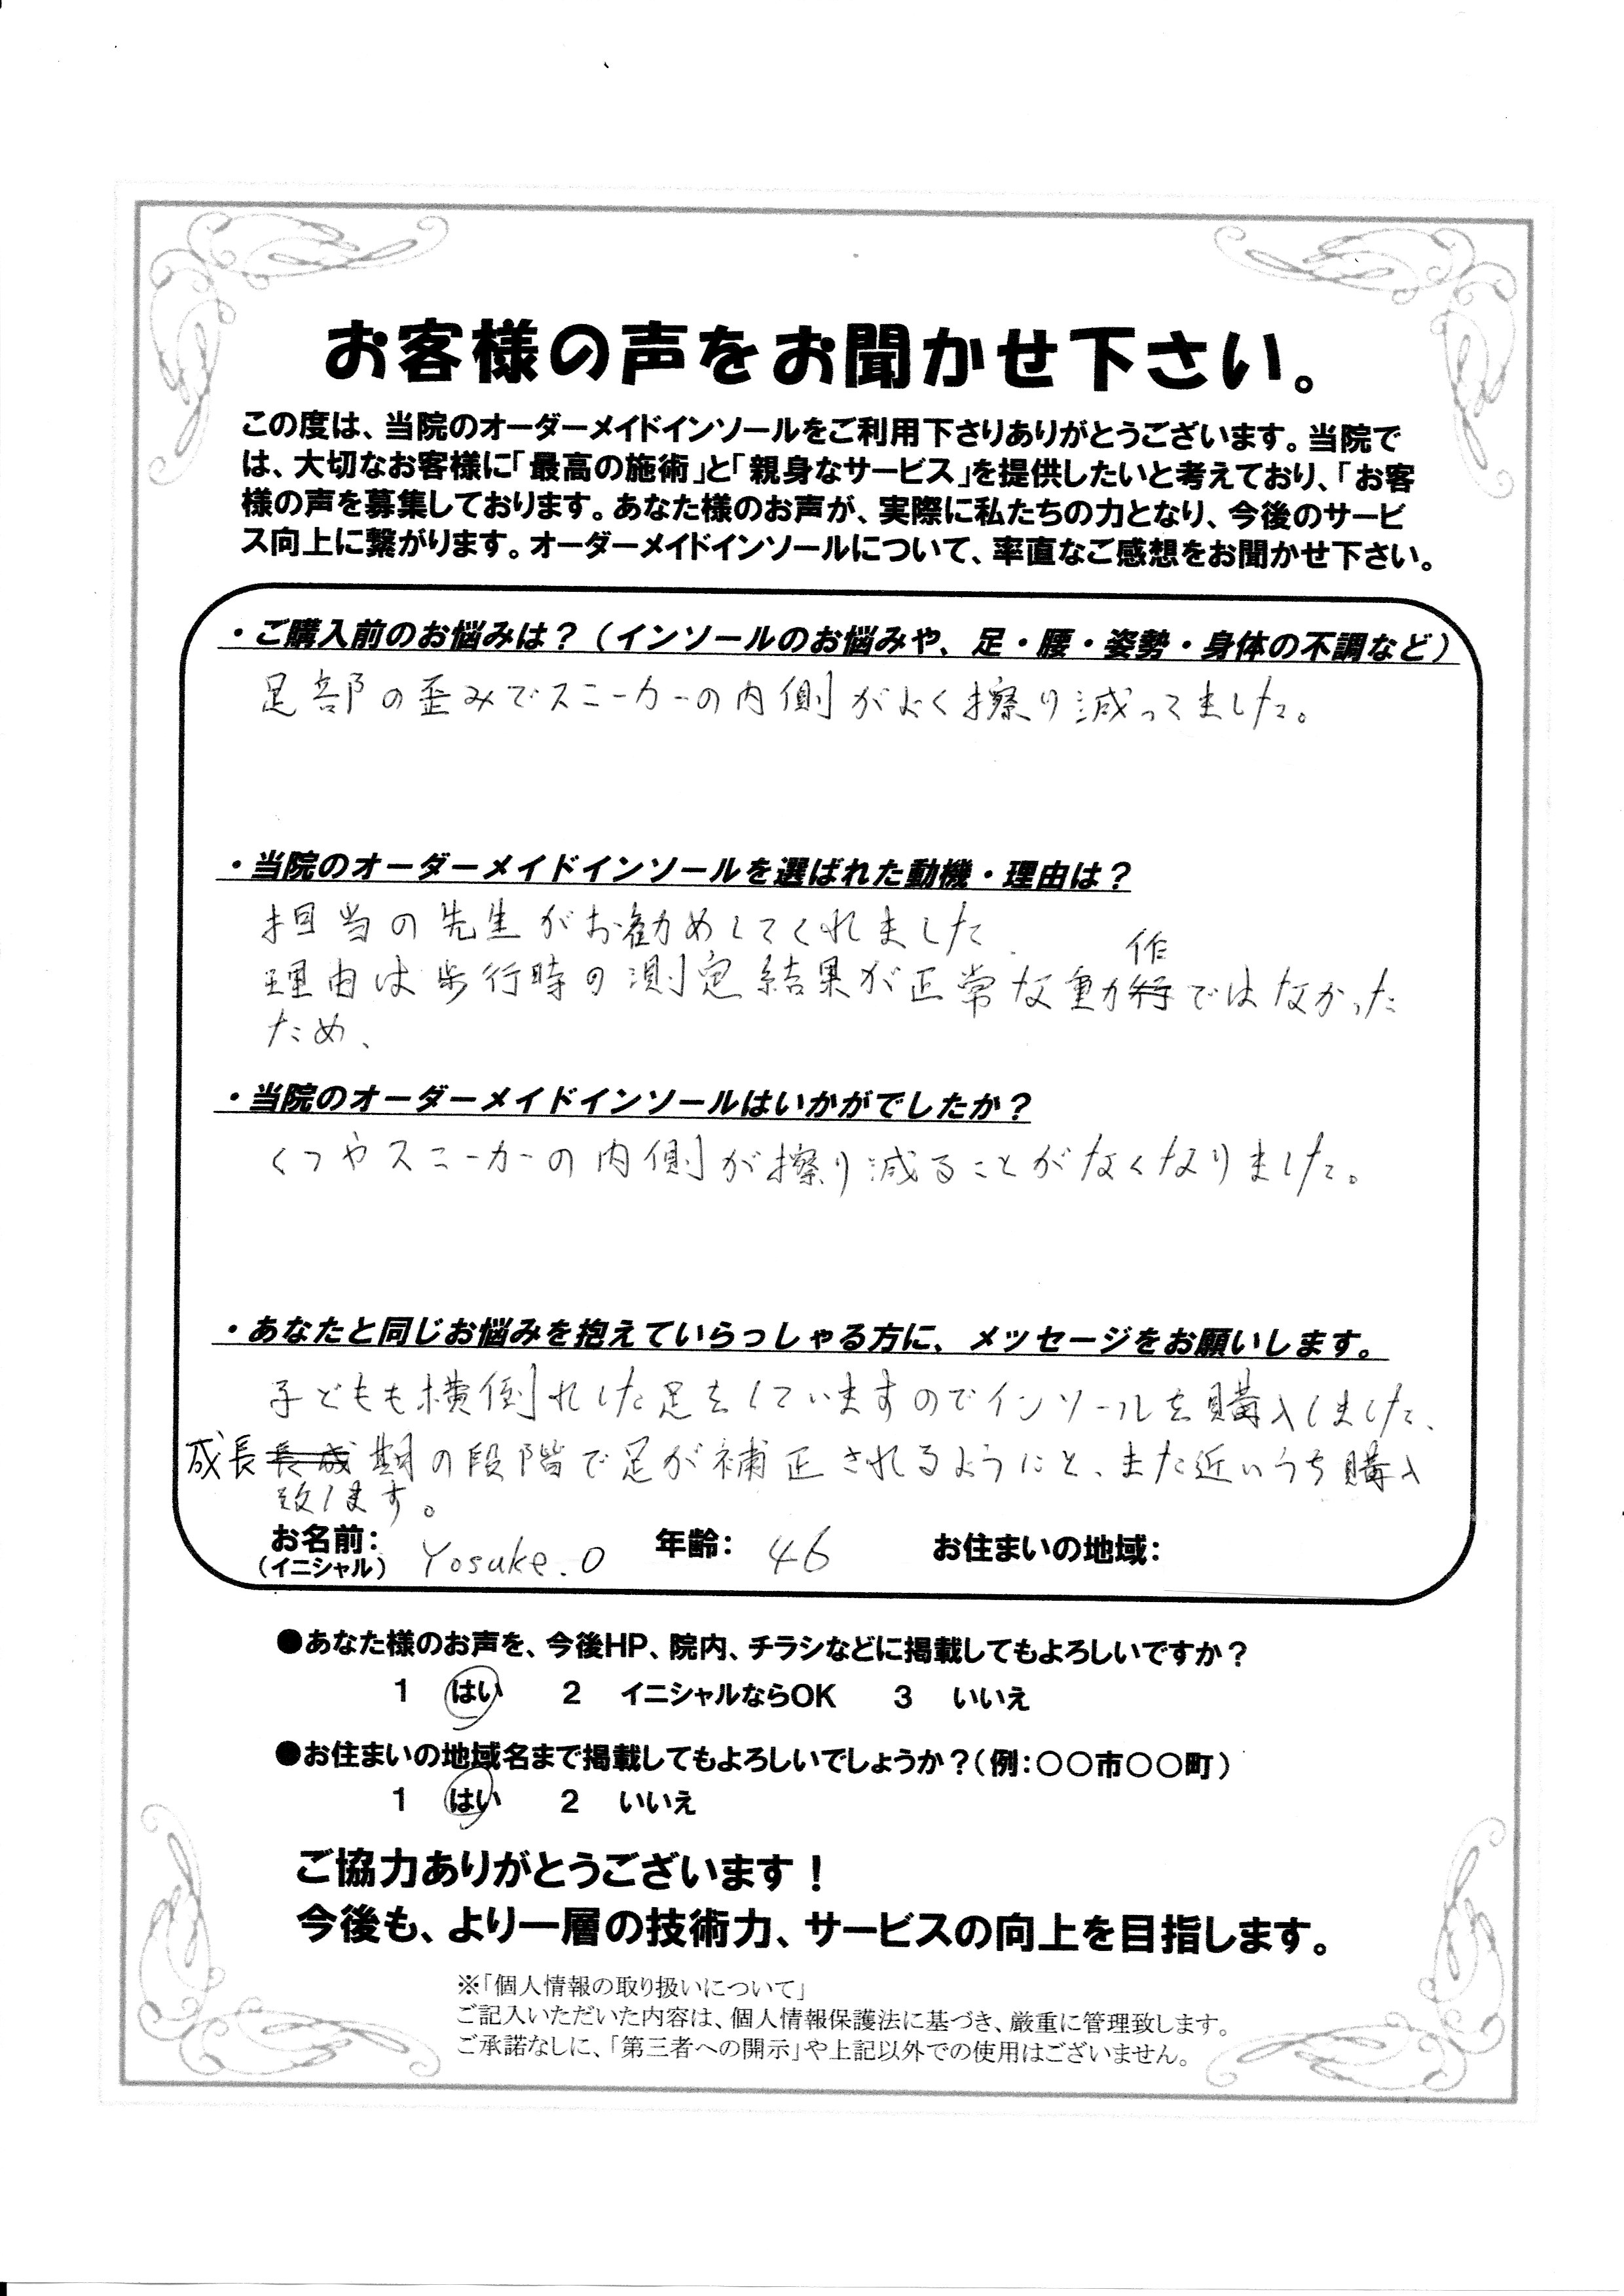 お客様の声をお聞かせ下さい。
この度は、当院のオーダーメイドインソールをご利用下さりありがとうございます。当院で
は、大切なお客様に「最高の施術」と「親身なサービス」を提供したいと考えており、「お客
様の声を募集しております。あなた様のお声が、実際に私たちの力となり、今後のサービ
ス向上に繋がります。オーダーメイドインソールについて、率直なご感想をお聞かせ下さい。
・ご購入前のお悩みは？（インソールのお悩みや、足・腰・姿勢・身体の不調など）
足部の歪みでスニーカーの内側がよく擦り減ってました。
・当院のオーダーメイドインソールを選ばれた動機・理由は？
担当の先生がお勧めしてくれました.
理由は歩行時の測定結果が正常な動作ではなかった
ため、
・当院のオーダーメイドインソールはいかがでしたか？
くつやスニーカーの内側が擦り減ることがなくなりました。
・あなたと同じお悩みを抱えていらっしゃる方に、メッセージをお願いします。
子どもも横倒れした足をしていますのでインソールを購入しました、
成長期の段階で足が補正されるようにと、また近いうち購入
致します。
お名前： Yosuke.O 年齢： 46 お住まいの地域：
（イニシャル）
●あなた様のお声を、今後HP、院内、チラシなどに掲載してもよろしいですか？
1 はい 2 イニシャルならOK 3 いいえ
●お住まいの地域名まで掲載してもよろしいでしょうか？（例：〇〇市〇〇町）
1 はい 2 いいえ
ご協力ありがとうございます！
今後も、より一層の技術力、サービスの向上を目指します。
※「個人情報の取り扱いについて」
ご記入いただいた内容は、個人情報保護法に基づき、厳重に管理致します。
ご承諾なしに、「第三者への開示」や上記以外での使用はございません。